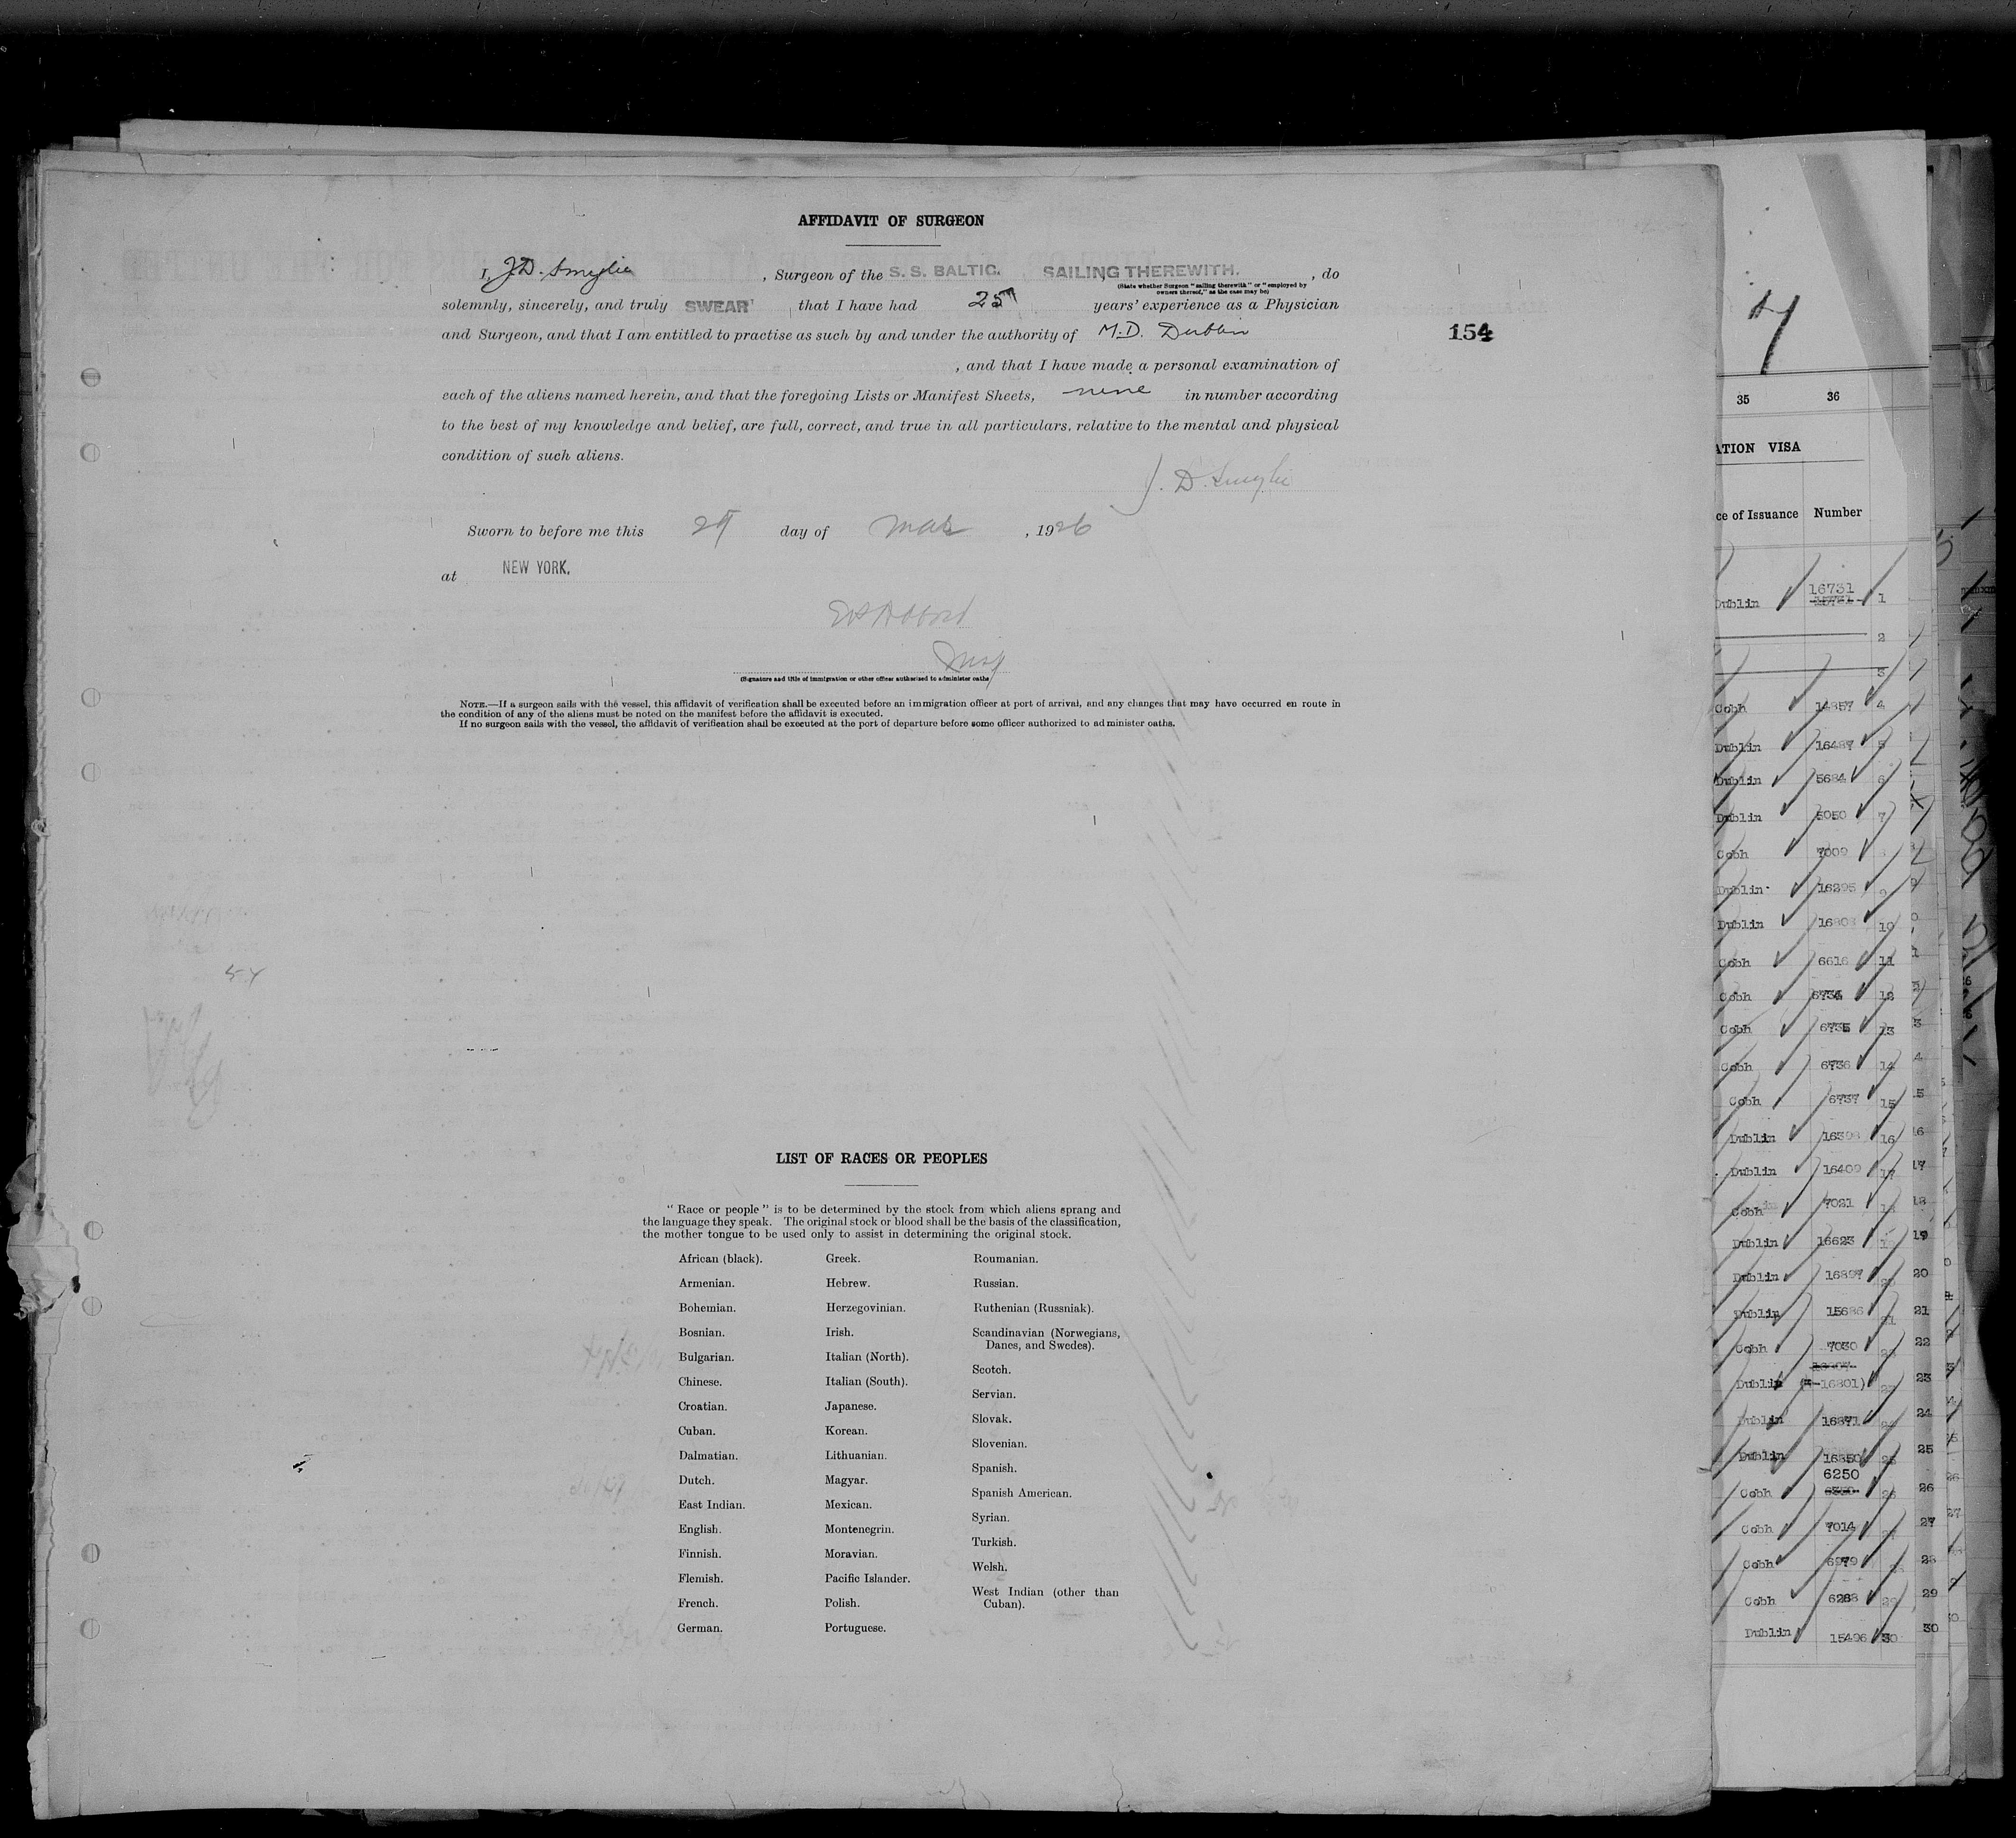 AFFIDAVIT OF SURGEON
I, J.D. Smylie, Surgeon of the S. S. BALTIC. SAILING THEREWITH. , do
(State whether Surgeon "sailing therewith" or "employed by
owners thereof," as the case may be)
solemnly, sincerely, and truly SWEAR that I have had 25 years' experience as a Physician
and Surgeon, and that I am entitled to practise as such by and under the authority of M.D. Dublin
154
, and that I have made a personal examination of
each of the aliens named herein, and that the foregoing Lists or Manifest Sheets, nine in number according
to the best of my knowledge and belief, are full, correct, and true in all particulars, relative to the mental and physical
condition of such aliens.
J. D. Smylie
Sworn to before me this day of Mar , 1926
at NEW YORK.
Insp
(Signature and title of immigration or other officer authorized to administer oaths)
NOTE.—If a surgeon sails with the vessel, this affidavit of verification shall be executed before an immigration officer at port of arrival, and any changes that may have occurred en route in
the condition of any of the aliens must be noted on the manifest before the affidavit is executed.
If no surgeon sails with the vessel, the affidavit of verification shall be executed at the port of departure before some officer authorized to administer oaths.
LIST OF RACES OR PEOPLES
"Race or people" is to be determined by the stock from which aliens sprang and
the language they speak. The original stock or blood shall be the basis of the classification,
the mother tongue to be used only to assist in determining the original stock.
African (black).
Armenian.
Bohemian.
Bosnian.
Bulgarian.
Chinese.
Croatian.
Cuban.
Dalmatian.
Dutch.
East Indian.
English.
Finnish.
Flemish.
French.
German.
Greek.
Hebrew.
Herzegovinian.
Irish.
Italian (North).
Italian (South).
Japanese.
Korean.
Lithuanian.
Magyar.
Mexican.
Montenegrin.
Moravian.
Pacific Islander.
Polish.
Portuguese.
Roumanian.
Russian.
Ruthenian (Russniak).
Scandinavian (Norwegians,
Danes, and Swedes).
Scotch.
Servian.
Slovak.
Slovenian.
Spanish.
Spanish American.
Syrian.
Turkish.
Welsh.
West Indian (other than
Cuban).
35 36
ATION VISA
ce of Issuance Number
Dublin 16731 1
2
3
Cobh 14857 4
Dublin 16487 5
Dublin 5684 6
Dublin 5050 7
Cobh 7009
Dublin 16295 9
Dublin 10
Cobh 6616 11
Cobh 12
Cobh 6735 13
Cobh 6736 14
Cobh 6737 15
Dublin 16
Dublin 16409 17
Cobh 7021 18
Dublin 16623 19
Dublin 16897 20
Dublin 15686 21
Cobh 7030 22
Dublin 16801) 23
Dublin 16871 24
Dublin 16550 25
6250
Cobh 26
Cobh 7014 27
Cobh 6979 28
Cobh 6288 29
Dublin 15496 30